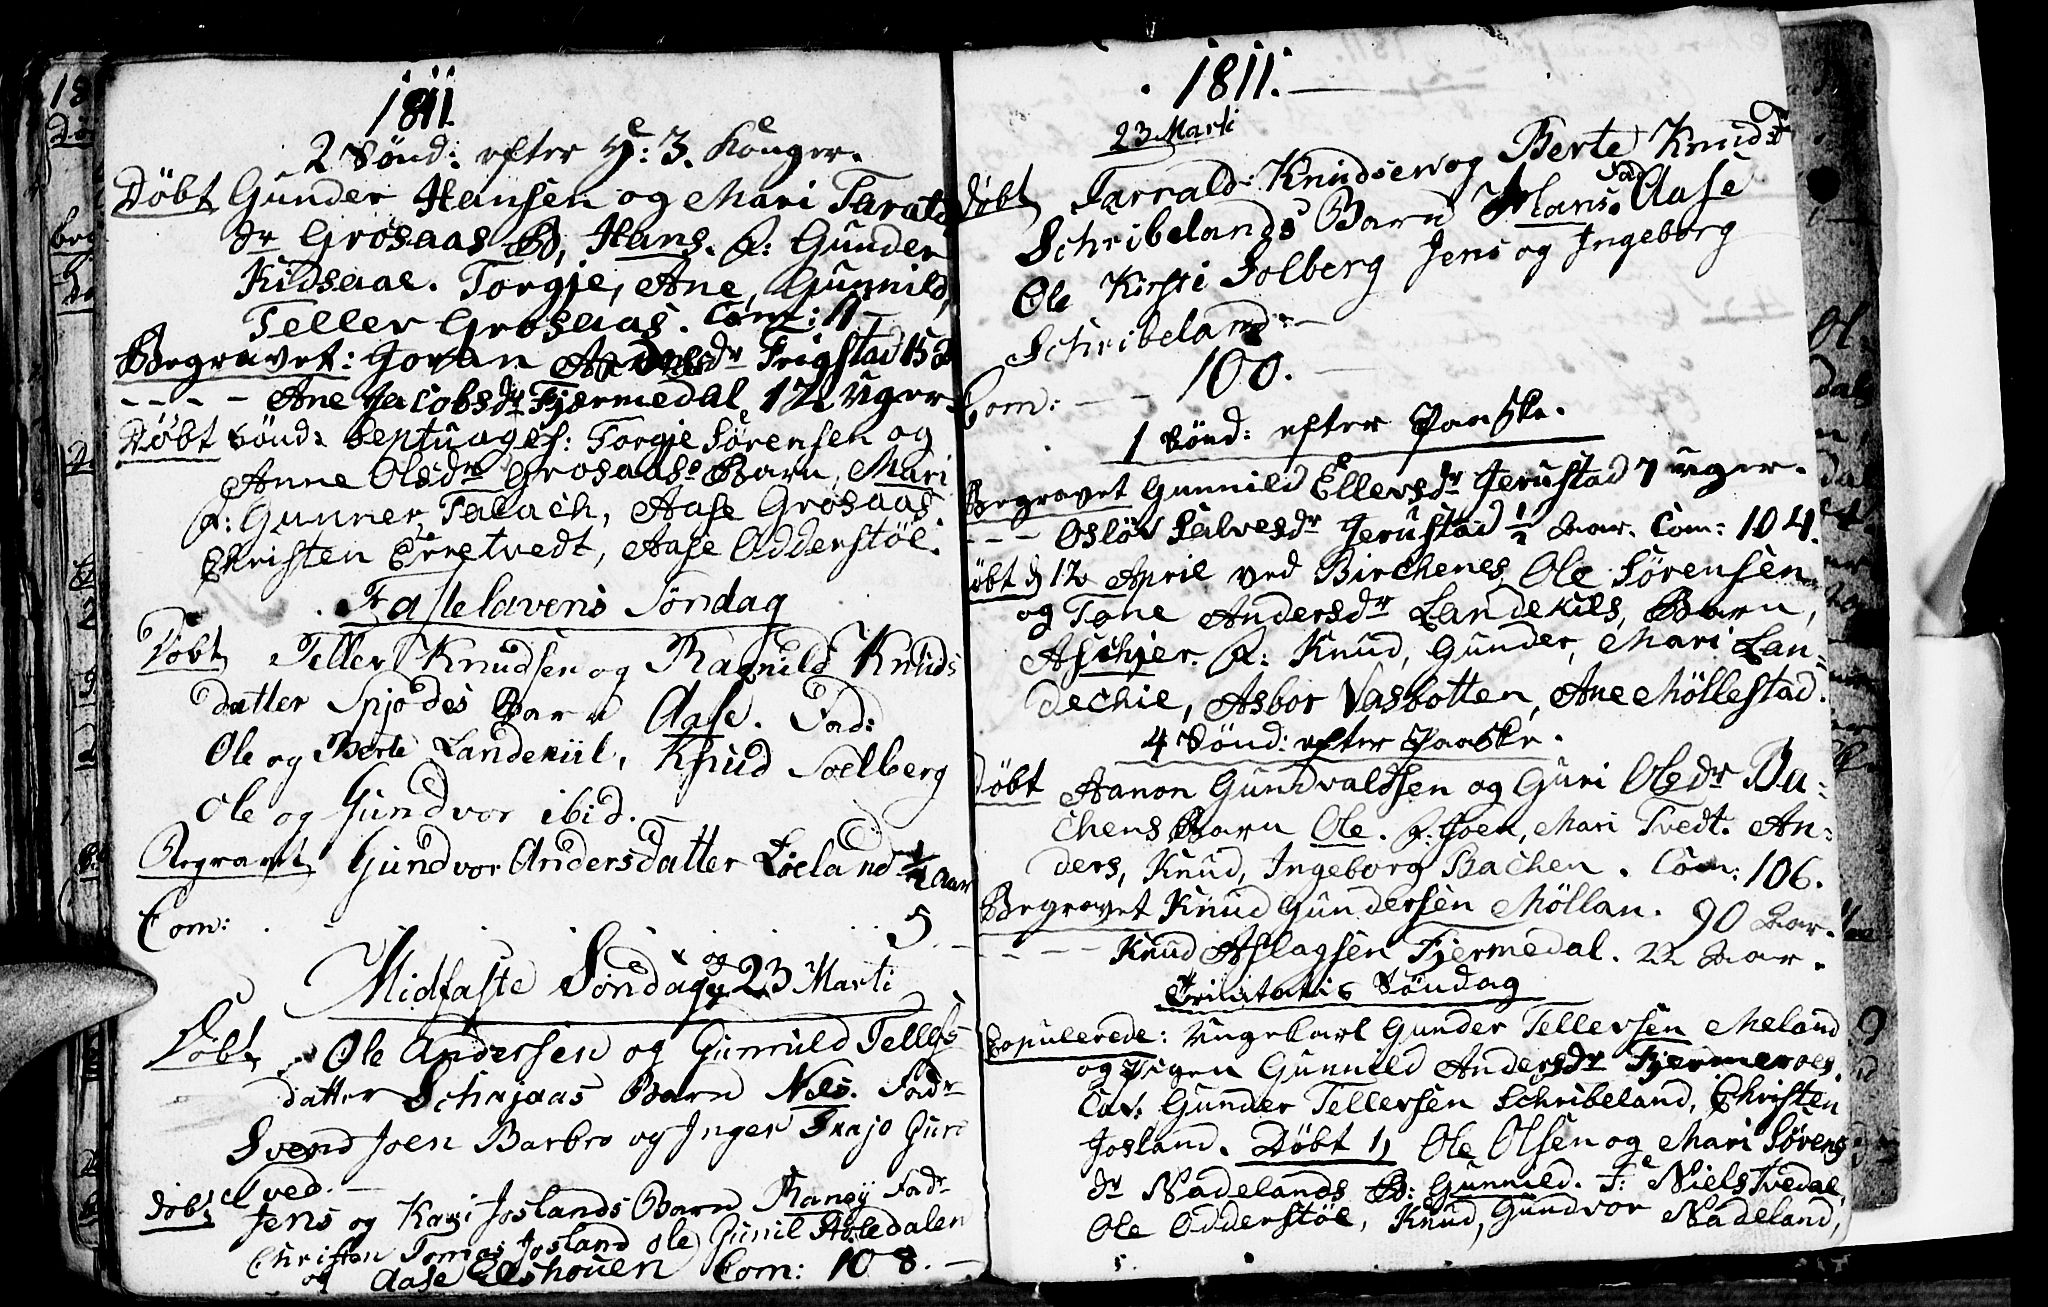 1811.
2 Sönd: efter H: 3. Konger.
Döbt Gunder Hansen og Mari Taralds
dr Grosaas B, Hans. F: Gunder
Kidsaae. Torgje, Ane, Gunnild,
Teller Grosaas. Com: 11 -
Begravet: Joran dr Frigstad 15
- - - - Ane Jacobsdr Fjermedal 12 Uger
Döbt Sönd: Septuages: Torgje Sörensen og
Anne Olsdr Grosaas. Barn, Mari
F: Gunner Talach, Aase Grosaas.
Christen Erretvedt, Aase Odderstöl.
Fastelavens Söndag
Döbt Teller Knudsen og Ragnild Knuds
datter Spjodes Barn Aase. Fad:
Ole og Berte Landekiil, Knud Soelberg
Ole og Gundvor ibid.
Begravet Gundvor Andersdatter Löeland 1/2 Aar
Com: . . . . 5.
Midfaste Söndag og 23 Marti
Döbt Ole Andersen og Gunnild Tellefs
datter Schajaas Barn Nels. Fadr
Svend Joen Barbro og Inger Guro
Tved. -
Döbt Jens og Kari Joslands Barn Rangy Fadr
Christen Tomas Josland Ole Gunil Aaledalen
og Aase Elshouen Com: 108. -
1811. -
23 Marti
Döbt Tarrald Knudsen og Berte Knudsdr
Schribelands Barn Hans. Fad Aase
Ole Kirsti Solberg Jens og Ingeborg
Schribeland. -
Com: - - 100. -
1 Sönd: efter Paaske.
Begravet Gunnild Ellersdr Jerustad 7 uger.
- - - Oslöv Salvesdr Jerustad 1/2 Aar. Com: 104.
Döbt d 12 April ved Birchenes, Ole Sörensen
og Tone Andersdr Landekils, Barn,
Aschjer. F: Knud, Gunder, Mari Lan=
dechie, Asbor Vasbotten, Ane Möllestad.
4 Sönd: efter Paaske.
Döbt Aanon Gundvaldsen og Guri Olsdr Ba=
chens Barn Ole. F: Joen, Mari Tvedt. An=
ders, Knud, Ingeborg Bachen. Com: 106.
Begravet Knud Gundersen Möllan. 90 Aar.
- - - Knud Aslagsen Fjermedal. 22 Aar.
Trinitatis Söndag
Copulerede: Ungekarl Gunder Tellersen Meland
og Pigen Gunnild Andersdr Fjermeros.
Cav: Gunder Tellersen Schribeland, Christen
Josland. Döbt 1, Ole Olsen og Mari Sörens
dr Nadelands B: Gunnild. F: Niels Tvedal,
Ole Odderstöl, Knud, Gundvor Nadeland,